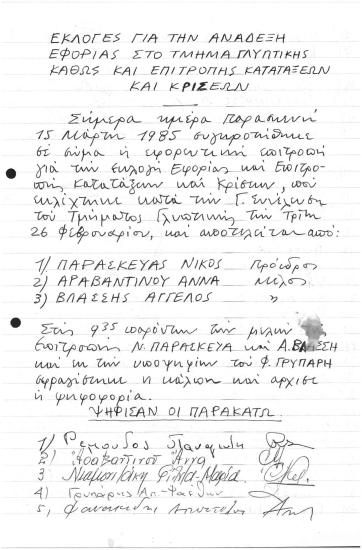 ΕΚΛΟΓΕΣ ΓΙΑ ΤΗΝ ΑΝΑΔΕΞΗ
ΕΦΟΡΙΑΣ ΣΤΟ ΤΜΗΜΑ ΓΛΥΠΤΙΚΗΣ
ΚΑΘΩΣ ΚΑΙ ΕΠΙΤΡΟΠΗΣ ΚΑΤΑΤΑΞΕΩΝ
ΚΑΙ ΚΡΙΣΕΩΝ
Σήμερα ημέρα Παρασκευή
15 Μάρτη 1985 συγκροτήθηκε
σε σώμα η εφορευτική επιτροπή
για την εκλογή Εφορίας και Επιτρο-
πής κατατάξεων και Κρίσεων, που
εκλέχτηκε κατά την Γ. Συνέλευση
του Τμήματος Γλυπτικής την Τρίτη
26 Φεβρουαρίου, και αποτελείται από:
1) ΠΑΡΑΣΚΕΥΑΣ ΝΙΚΟΣ Πρόεδρος
2) ΑΡΑΒΑΝΤΙΝΟΥ ΑΝΝΑ Μέλος
3) ΒΛΑΣΣΗΣ ΑΓΓΕΛΟΣ "
Στις 9 35 παρόντων των μελών
επιτροπής Ν. ΠΑΡΑΣΚΕΥΑ και Α. ΒΛΑΣΣΗ
και του υποψηφίου Φ. ΓΡΥΠΑΡΗ
σφραγίστηκε η κάλπη και άρχισε
η ψηφοφορία.
ΨΗΦΙΣΑΝ ΟΙ ΠΑΡΑΚΑΤΩ
1) Ρεμούνδος Παναγιώτης
2) Αραβαντινού Άννα
3
4) Γρυπάρης
5,